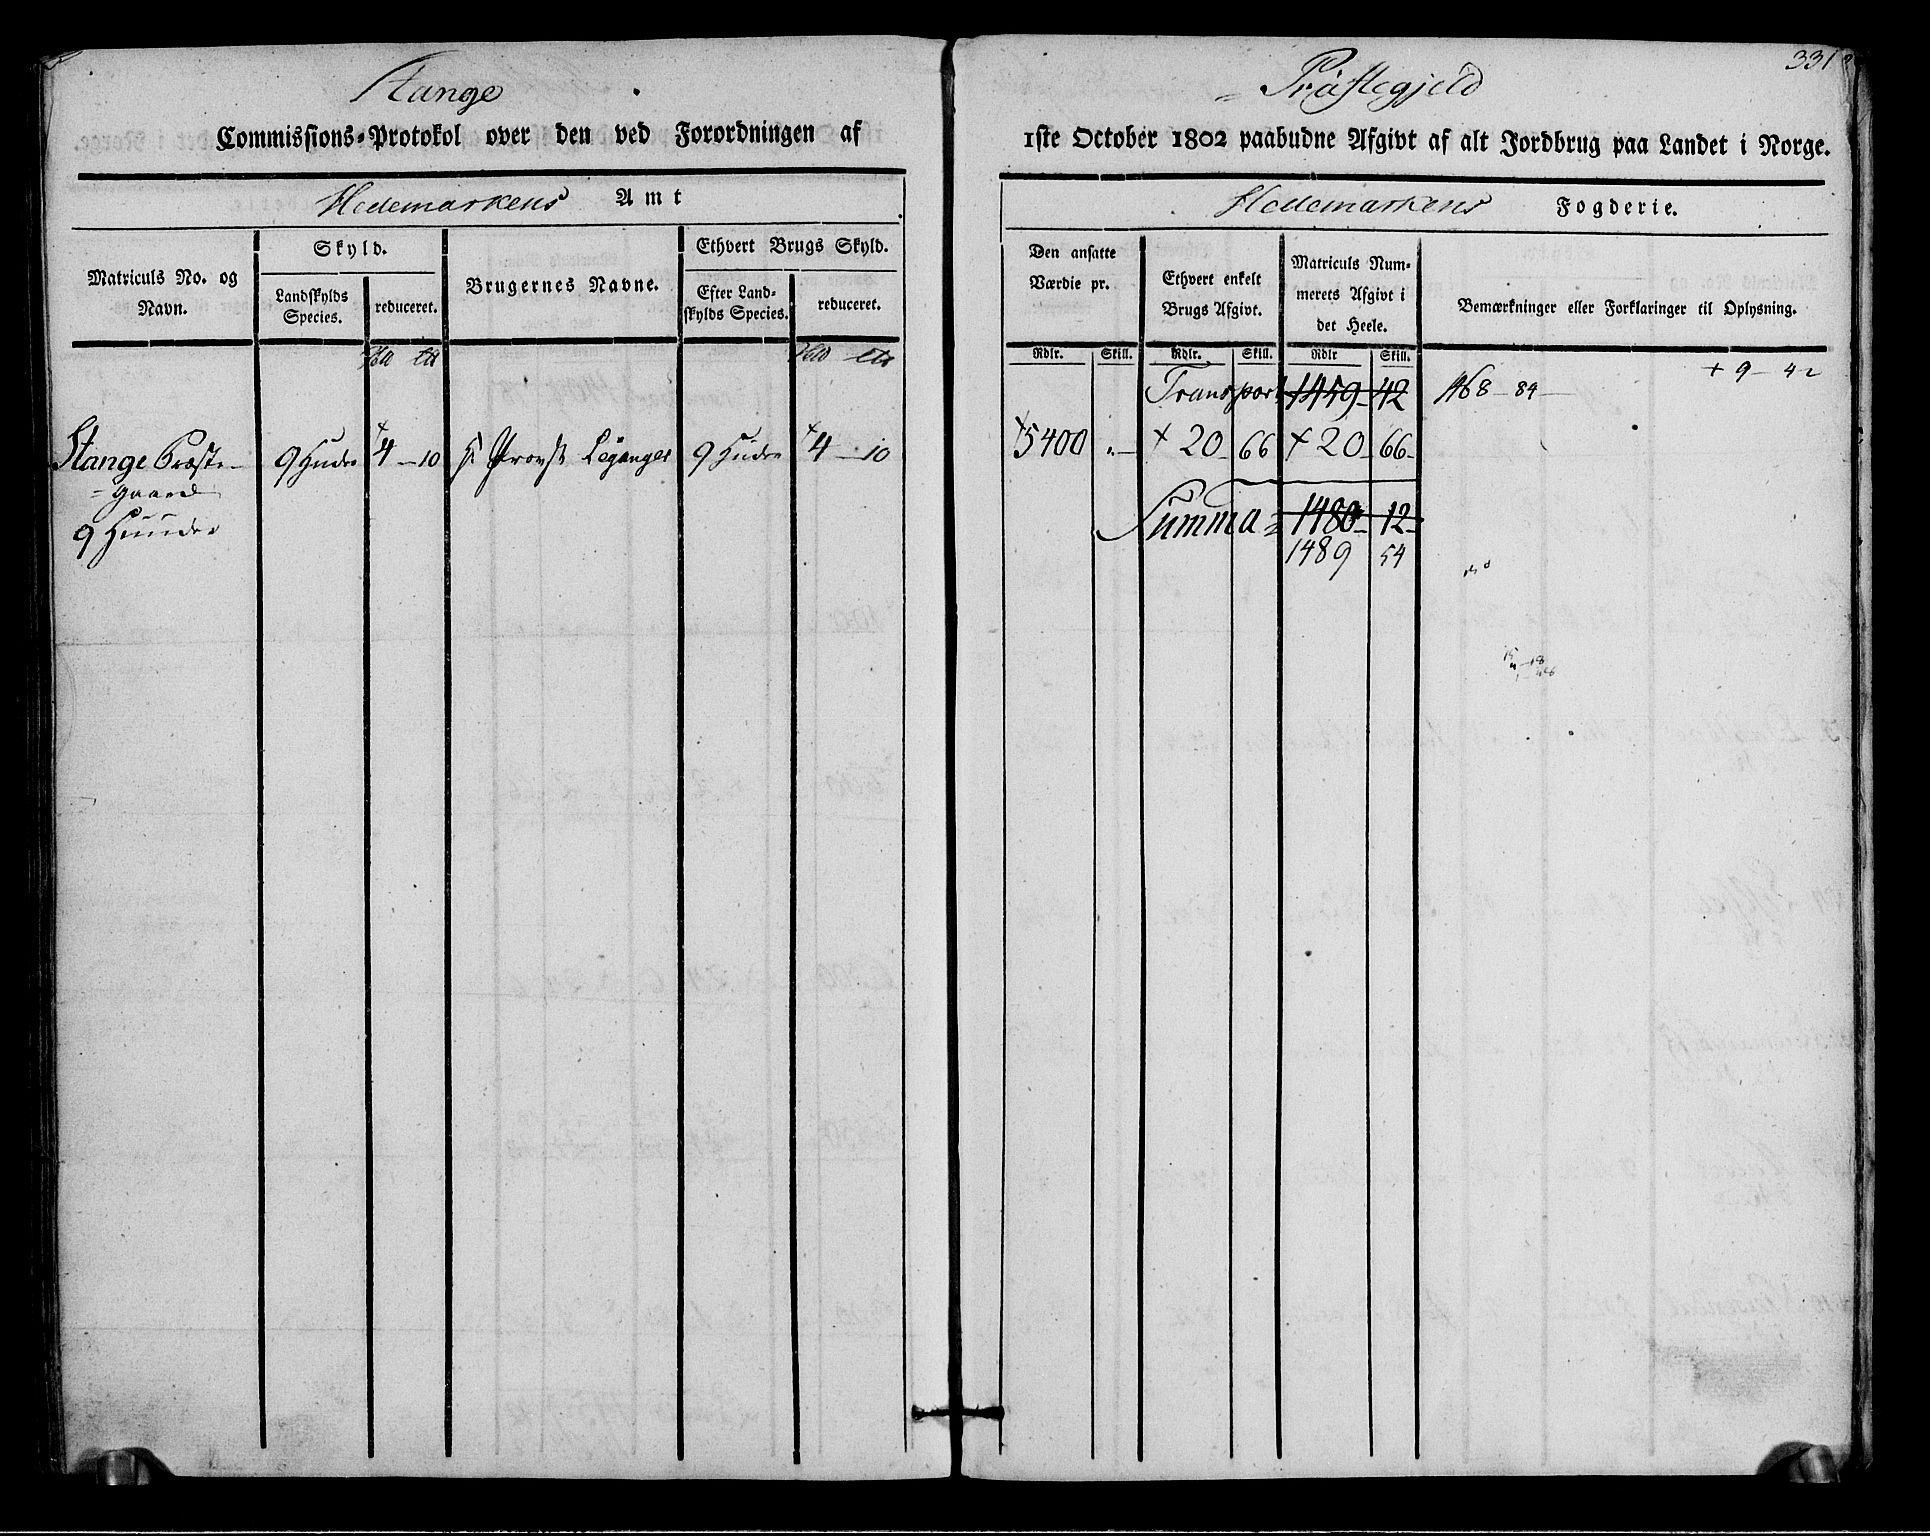 Stange
Commissions-Protokol over den ved Forordningen af
Hedemarkens Amt
Matriculs No. og Navn.
Skyld.
Landskylds Species.
reduceret.
Brugernes Navne.
Ethvert Brugs Skyld.
Efter Landskylds Species.
reduceret.
Stange Præste- 9 Huder + 4 - 10 H Provst Leganger 9 Huder + 4 - 10
= gaard
9 Huuder
331
= Præstegjeld
1ste October 1802 paabudne Afgivt af alt Jordbrug paa Landet i Norge.
Hedemarkens Fogderie.
Den ansatte Værdie pr.
Ethvert enkelt Brugs Afgivt.
Matriculs Nummerets Afgivt i det Heele.
Bemærkninger eller Forklaringer til Oplysning.
Rdlr. Skill. Rdlr. Skill. Rdlr Skill.
+ 9 - 42
Transport 1459 - 42 1468 - 84
+ 5400 " - + 20 - 66 + 20 - 66 -
Summa = 1480 - 12 -
1489 54